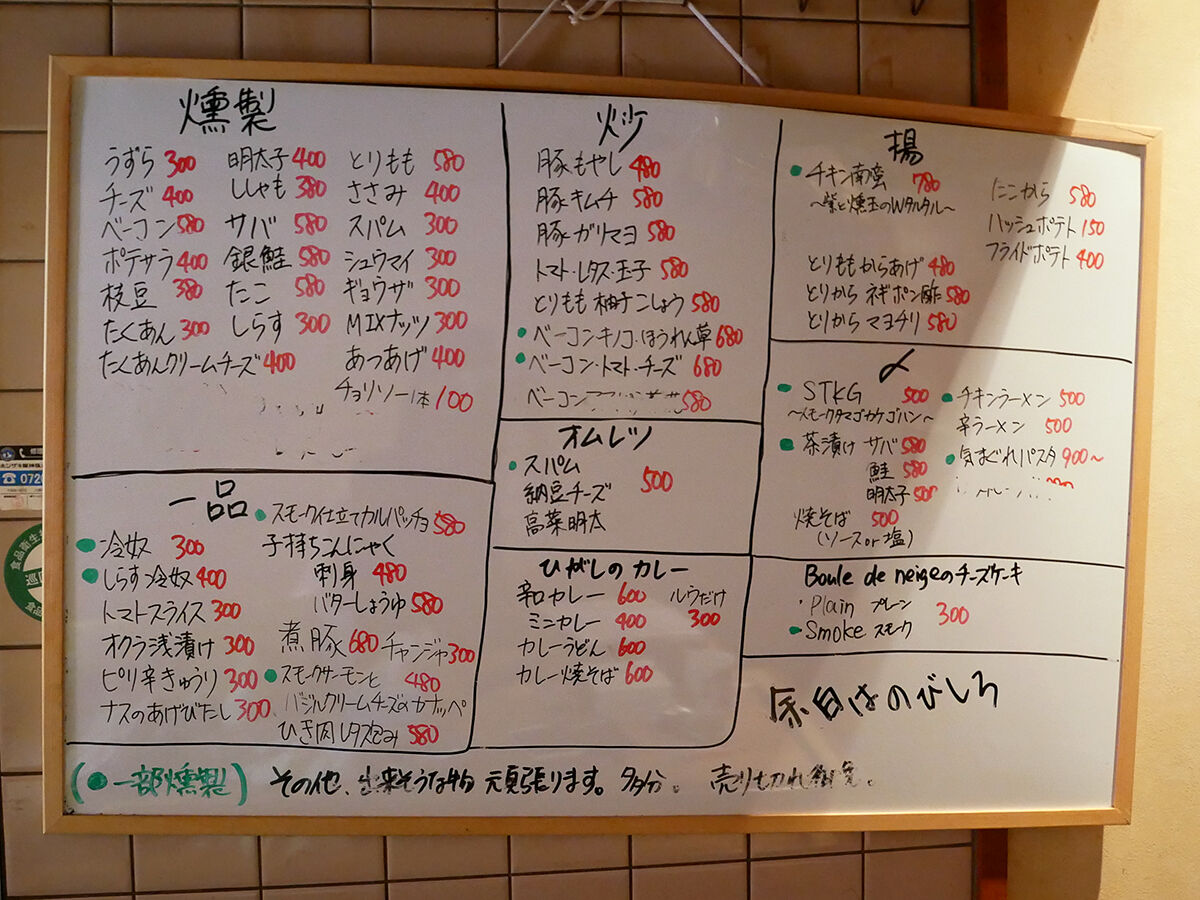 燻製
うずら 300
チーズ 400
ベーコン 580
ポテサラ 400
枝豆 380
たくあん 300
たくあんクリームチーズ 400
明太子 400
ししゃも 380
サバ 580
銀鮭 580
たこ 580
しらす 300
とりもも 580
ささみ 400
スパム 300
シュウマイ 300
ギョウザ 300
MIXナッツ 300
あつあげ 400
チョリソー1本 100
炒
豚もやし 480
豚キムチ 580
豚ガリマヨ 580
トマト・レタス・玉子 580
とりもも柚子こしょう 580
●ベーコン・キノコ・ほうれん草 680
●ベーコン・トマト・チーズ 680
ベーコン 580
揚
●チキン南蛮 780
〜柴と燻玉のWタルタル〜
とりももからあげ 480
とりから ネギポン酢 580
とりから マヨチリ 580
にこから 580
ハッシュポテト 150
フライドポテト 400
オムレツ
●スパム
納豆チーズ 500
高菜明太
〆
●STKG 500
〜スモークタマゴカケゴハン〜
●茶漬け サバ 580
鮭 580
明太子 500
焼そば 500
(ソース or 塩)
●チキンラーメン 500
辛ラーメン 500
●気まぐれパスタ 900〜
一品
●冷奴 300
●しらす冷奴 400
トマトスライス 300
オクラ浅漬け 300
ピリ辛きゅうり 300
ナスのあげびたし 300
●スモーク仕立てカルパッチョ 580
子持ちこんにゃく
刺身 480
バターしょうゆ 580
煮豚 680 チャンジャ 300
●スモークサーモンと 480
バジルクリームチーズのカナッペ
ひき肉レタス包み 580
ひがしのカレー
辛和カレー 600
ミニカレー 400
カレーうどん 600
カレー焼そば 600
ルウだけ
300
Boule de neigeのチーズケーキ
・Plain プレーン 300
●Smoke スモーク
余白はのびしろ
(●一部燻製) その他、出来そうな物 頑張ります。多分。 売り切れ御免。
0720